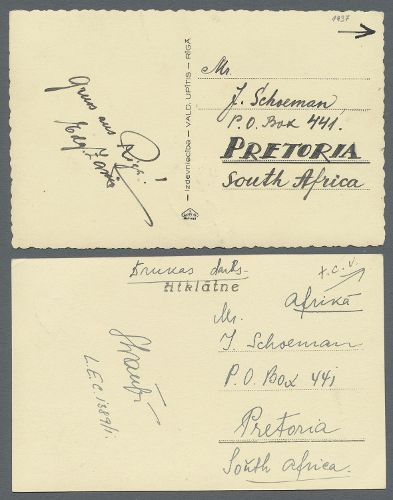 1937
Gruss aus
Riga!
— Izdevniecība — VALD. UPĪTIS — RĪGĀ
Mr.
J. Schoeman
P. O. Box 441.
PRETORIA
South Africa
Drukas darbs
Atklātne
t. C. V.
Afrikā
Mr.
J. Schoeman
P. O. Box 441
Pretoria
South Africa.
L.E.C. 1389/1.